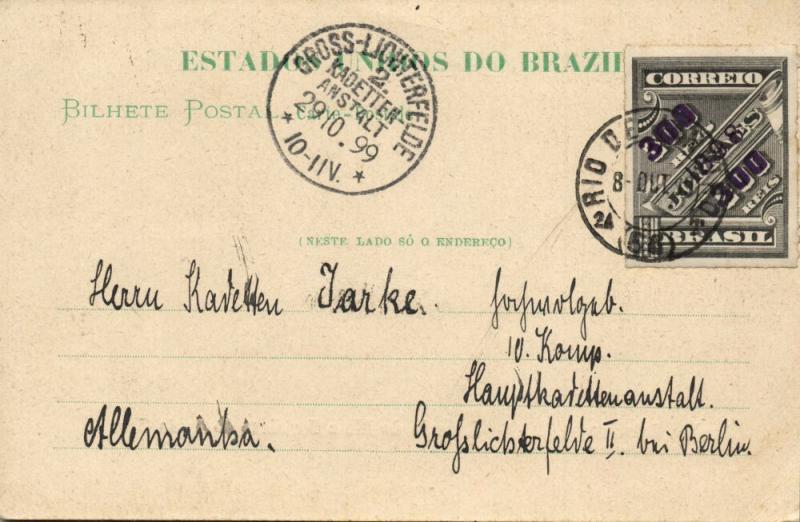 ESTADOS UNIDOS DO BRAZIL
BILHETE POSTAL
GROSS-LICHTERFELDE
2.
KADETTEN
ANSTALT
29.10.99
* 10-11V. *
CORREIO
300
REIS
JORNAES
300
REIS
BRASIL
RIO DE
8-OUT
(NESTE LADO SÓ O ENDEREÇO)
Herrn Kadetten Jarke. Hochwolgeb.
10. Komp.
Hauptkadettenanstalt.
Allemanha. Großlichterfelde II. bei Berlin.